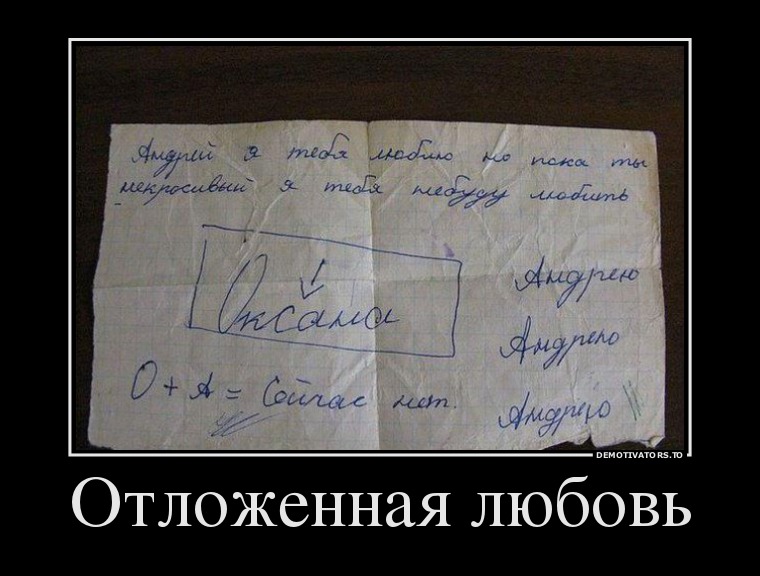 Андрей я тебя люблю но пока ты
некросивый я тебя небуду любить
Оксана
Андрею
Андрею
О + А = Сейчас нет.
Андрею
DEMOTIVATORS.TO
Отложенная любовь